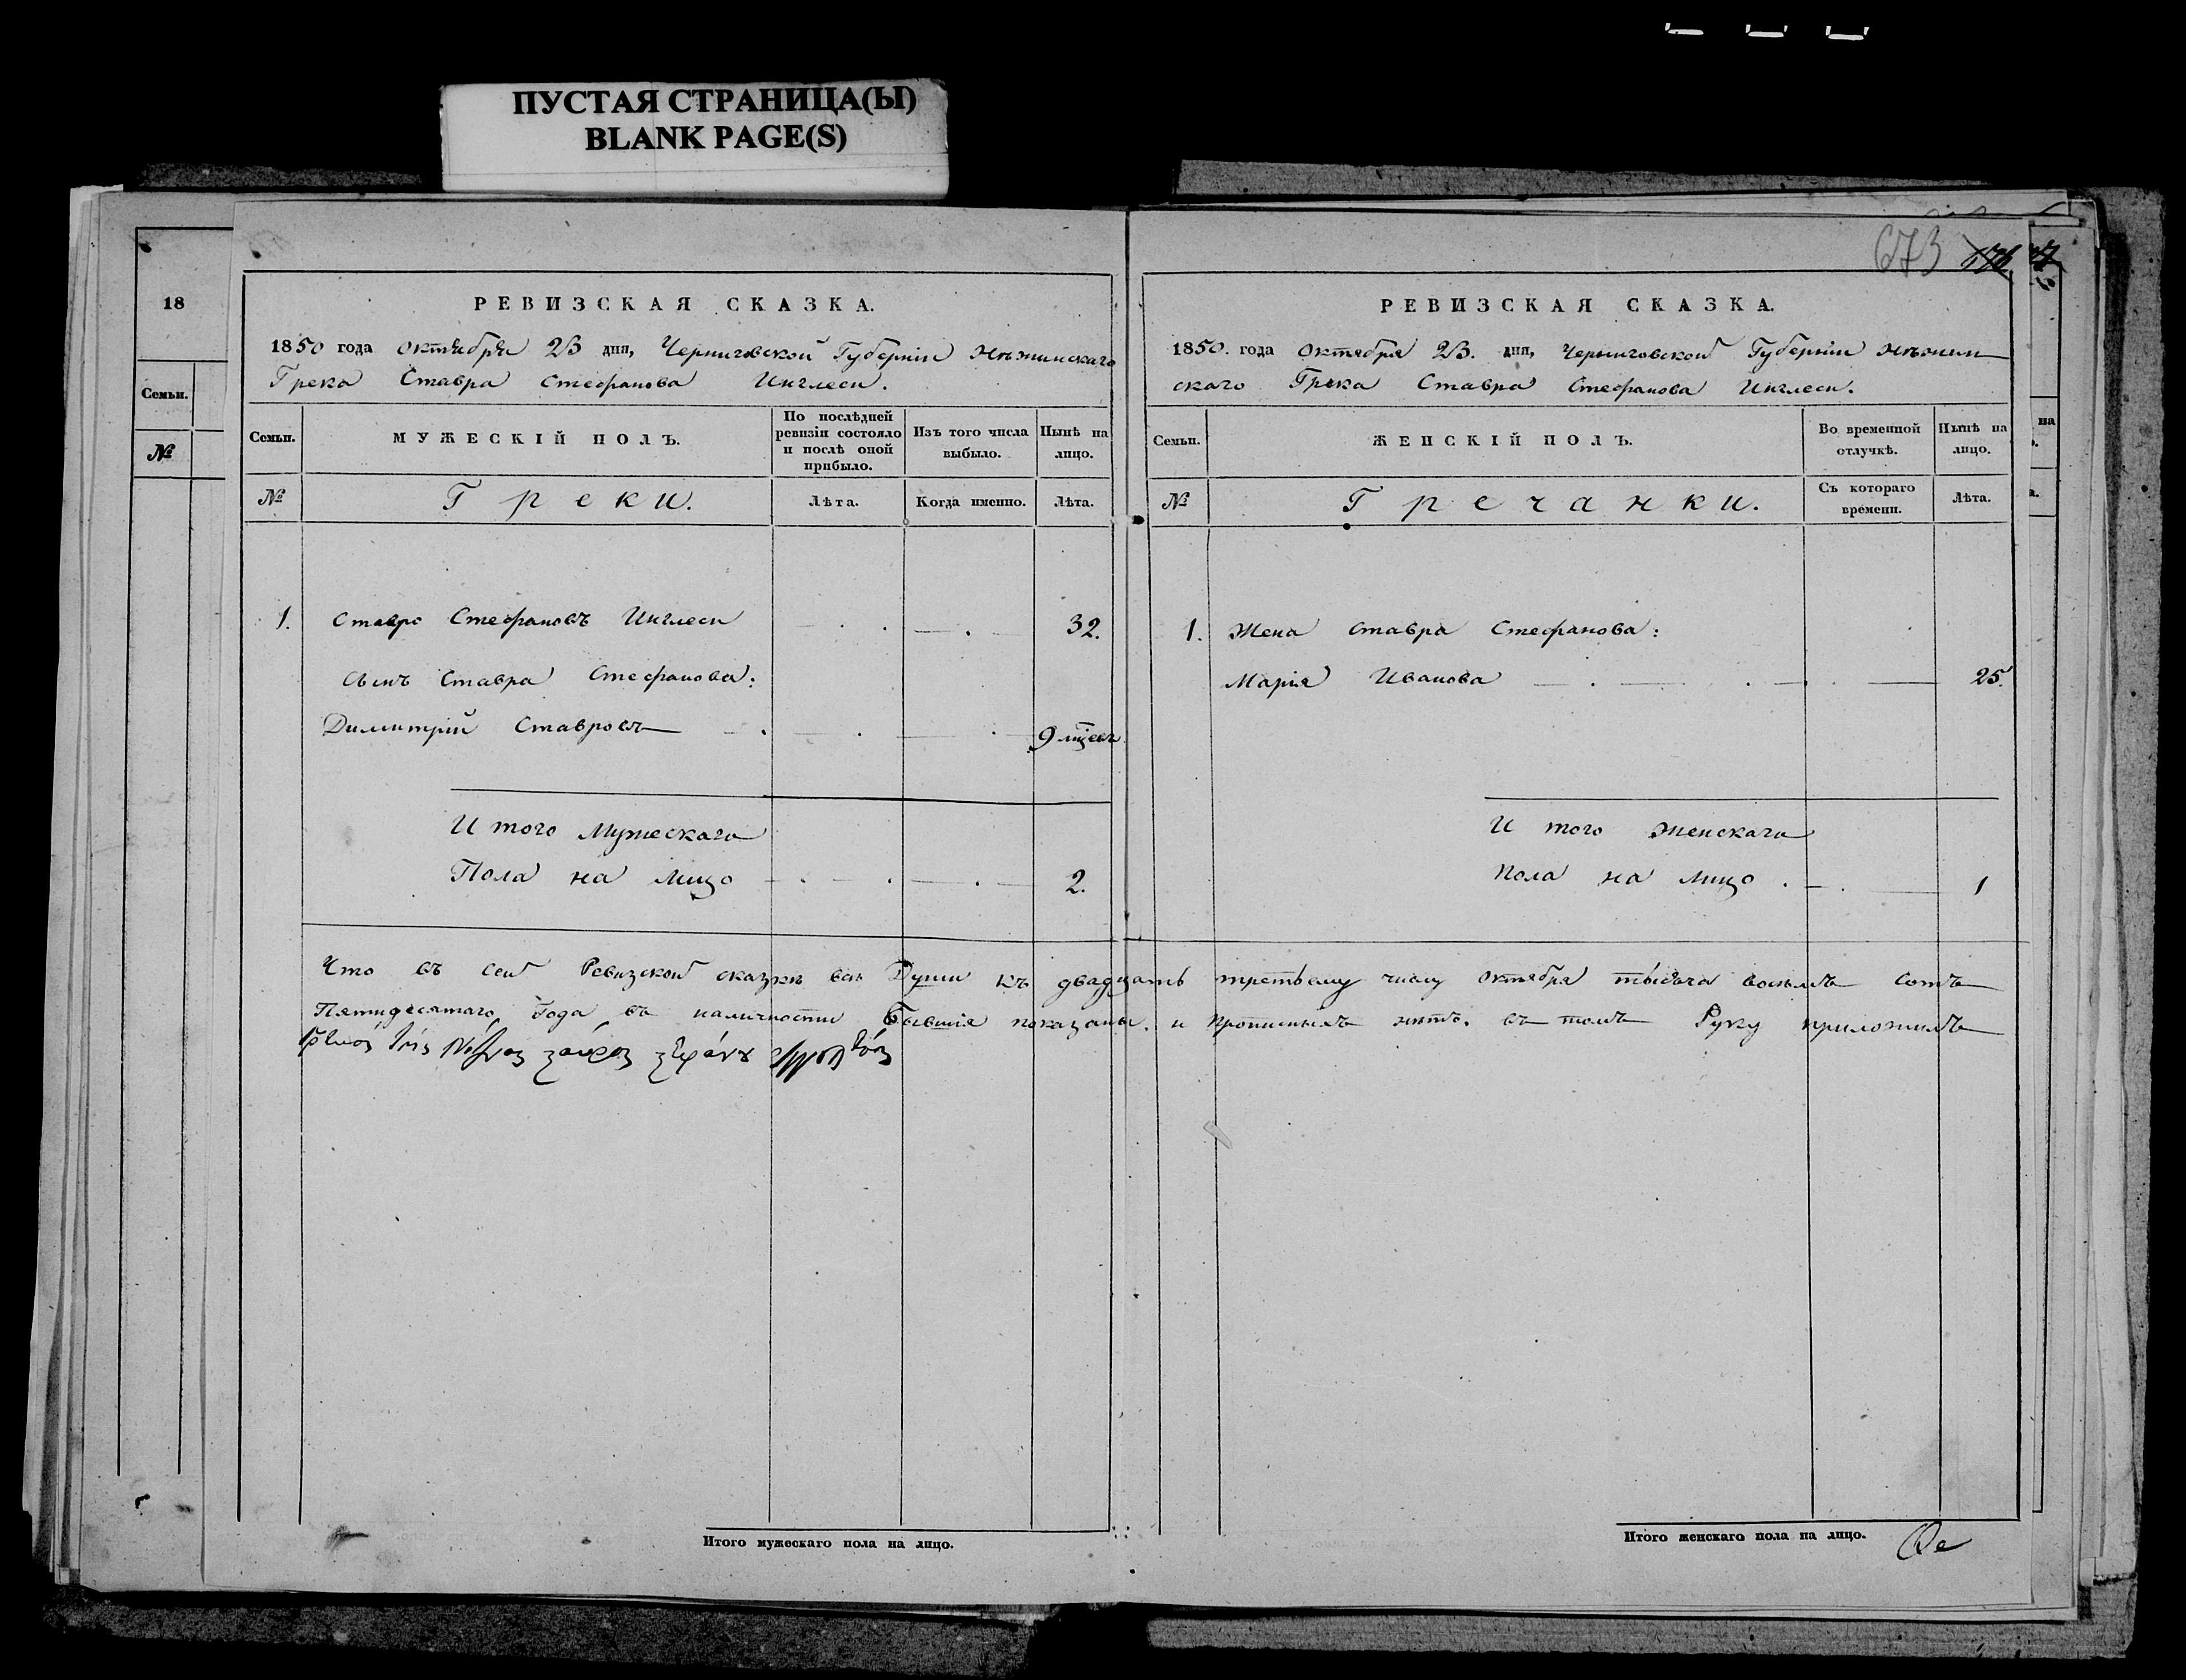 ПУСТАЯ СТРАНИЦА(Ы)
BLANK PAGE(S)
18
Семьи.
№
РЕВИЗСКАЯ СКАЗКА.
1850 года октября 23 дня, Черниговской Губернiи Нѣжинскаго
Грека Ставра Стефанова Инглеси.
Семьи.
МУЖЕСКIЙ ПОЛЪ.
По послѣдней ревизiи состояло и послѣ оной прибыло.
Изъ того числа выбыло.
Нынѣ на лицо.
№
Греки.
Лѣта.
Когда именно.
Лѣта.
1. Ставро Стефановъ Инглеси 32.
сынъ Ставра Стефанова:
Димитрiй Ставровъ 9 мѣсяц
И того Мужескаго
Пола на лицо 2.
673
РЕВИЗСКАЯ СКАЗКА.
1850. года октября 23. дня, Черниговской Губернiи Нѣжин
скаго Грека Ставра Стефанова Инглеси.
Семьи.
ЖЕНСКIЙ ПОЛЪ.
Во временной отлучкѣ.
Нынѣ на лицо.
№
Гречанки.
Съ котораго времени.
Лѣта.
1. Жена Ставра Стефанова:
Марiя Иванова 25.
И того женскаго
пола на лицо 1
Что въ сей Ревизской сказкѣ всѣ Души къ двадцать третьему числу октября тысяча восемъ сотъ
Пятидесятаго Года въ наличности бывшiя показаны. и прописныхъ нѣтъ. въ томъ Руку приложилъ
Итого мужескаго пола на лицо.
Итого женскаго пола на лицо.